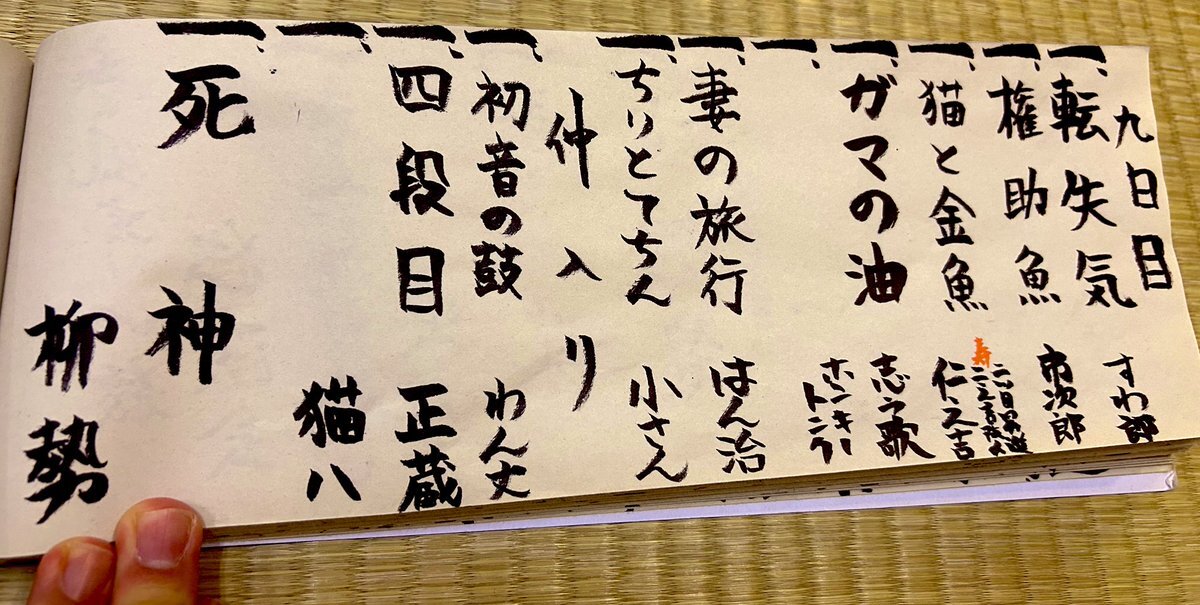 九日目
一、転失気 すわ郎
一、権助魚 市次郎
寿
一、猫と金魚 仁之吉
一、ガマの油 志ん歌
一、 ホンキートンク
一、妻の旅行 はん治
一、ちりとてちん 小さん
仲入り
一、初音の鼓 わん丈
一、四段目 正蔵
一、 猫八
一、死神 柳勢